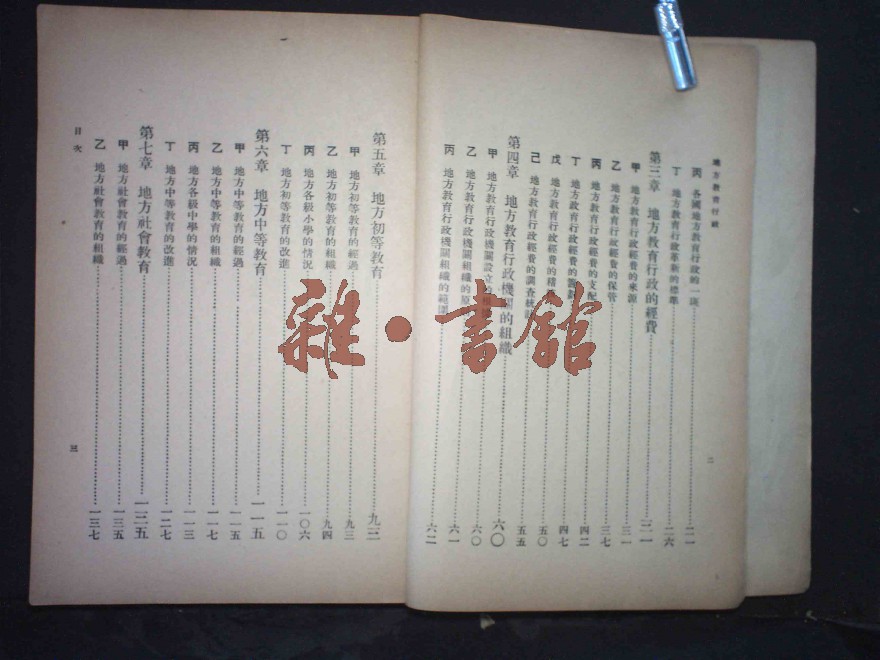 地方教育行政
丙 各國地方教育行政的一斑……二一
丁 地方教育行政革新的標準……二六
第三章 地方教育行政的經費……三一
甲 地方教育行政經費的來源……三一
乙 地方教育行政經費的保管……三七
丙 地方教育行政經費的支配……四二
丁 地方教育行政經費的……四七
戊 地方教育行政經費的……五〇
己 地方教育行政經費的調查……五五
第四章 地方教育行政機關的組織……六〇
甲 地方教育行政機關設立的……六〇
乙 地方教育行政機關組織的原……六一
丙 地方教育行政機關組織的範圍……六二
二
第五章 地方初等教育……九三
甲 地方初等教育的經過……九三
乙 地方初等教育的組織……九四
丙 地方各級小學的情況……一〇六
丁 地方初等教育的改進……一一〇
第六章 地方中等教育……一一五
甲 地方中等教育的經過……一一五
乙 地方中等教育的組織……一一七
丙 地方各級中學的情況……一一三
丁 地方中等教育的改進……一二七
第七章 地方社會教育……一三五
甲 地方社會教育的經過……一三五
乙 地方社會教育的組織……一三七
目次
三
雜·書館